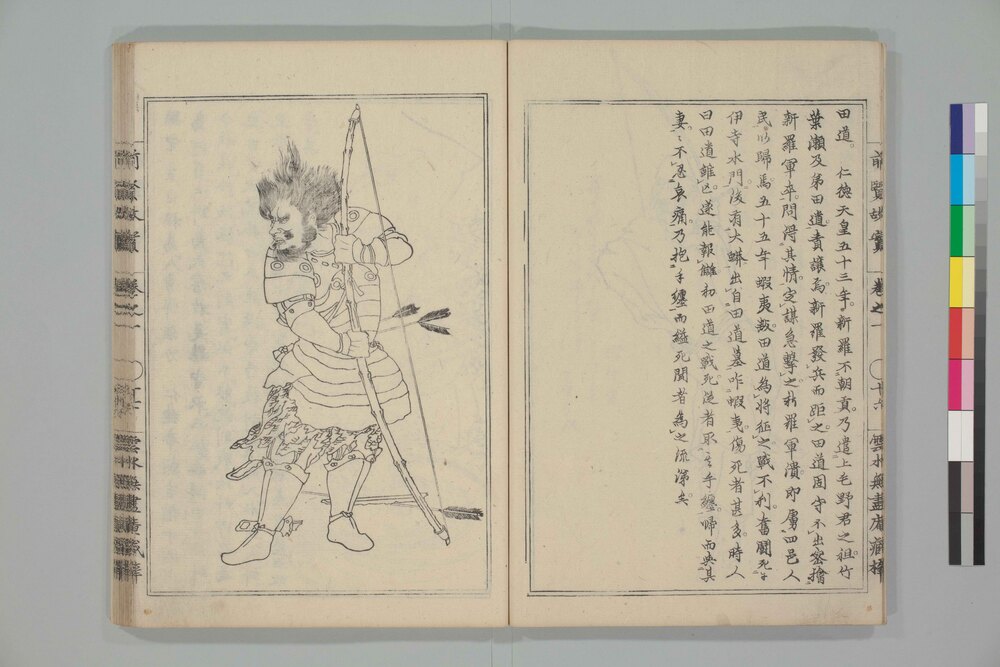 田道。仁徳天皇五十三年。新羅不朝貢。乃遣上毛野君之祖竹
葉瀬及弟田道責讓焉。新羅發兵而距之。田道固守不出。密擒
新羅軍卒。問得其情。定謀急擊之。新羅軍潰。即虜四邑人
民以歸焉。五十五年蝦夷叛。田道為將征之。戰不利。奮鬪死于
伊寺水門。後有大蟒。出自田道墓。咋蝦夷。傷死者甚多。時人
曰田道雖亡。遂能報讎。初田道之戰死。從者取其手纏。歸而與其
妻。妻不忍哀痛。乃抱手纏而縊死。聞者為之流涕矣
前賢故實 卷之一 十六 雲水無盡庵藏梓